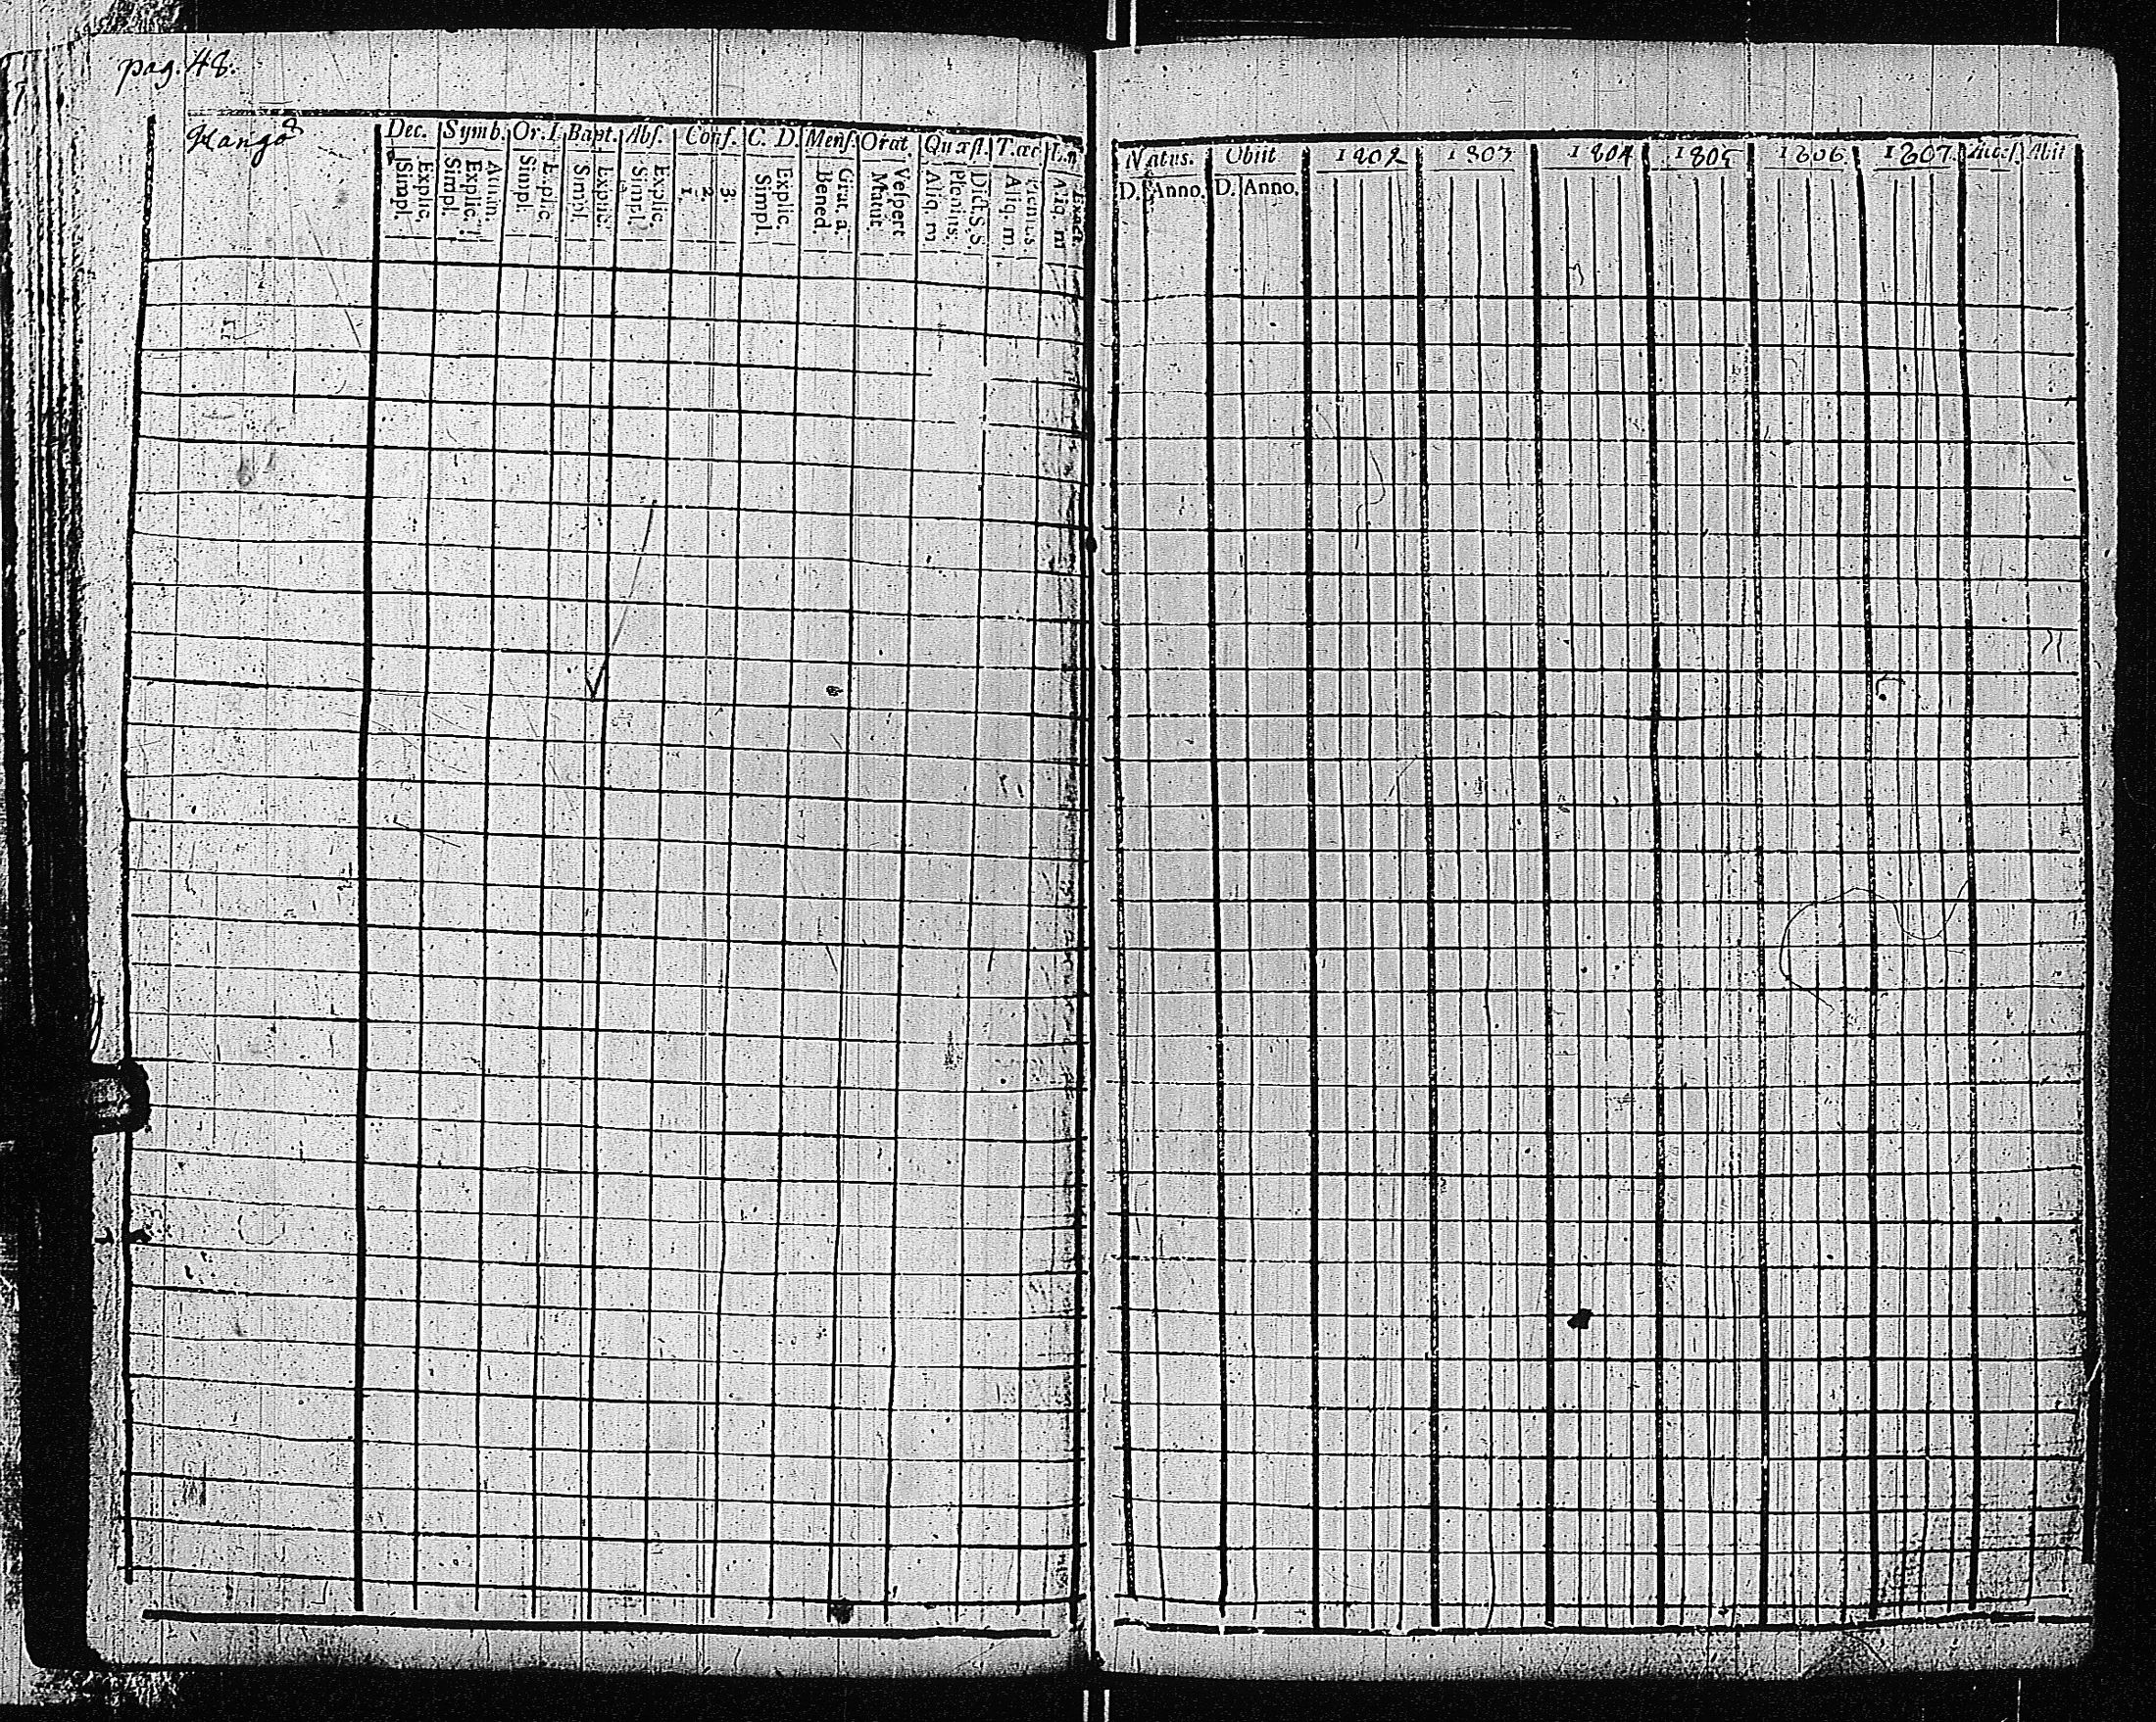 pag. 48.
Kangas
Dec. Symb. Or. D. Bapt. Abs. Conf. C. D. Mens. Orat. Quæst. T. œc
Explic. Simpl.
Athan. Explic. Simpl.
Explic. Simpl.
Explic. Simpl.
Explic. Simpl.
3. 2. 1.
Explic. Simpl.
Grat. a. Bened.
Vespert. Matut.
Dict. S. S. Plenius. Aliq. m.
Plenius Aliq. m.
Exact. Aliq. m
Natus. Obiit 1802 1803 1804 1805 1806 1807. Access. Abit
D. Anno. D. Anno.